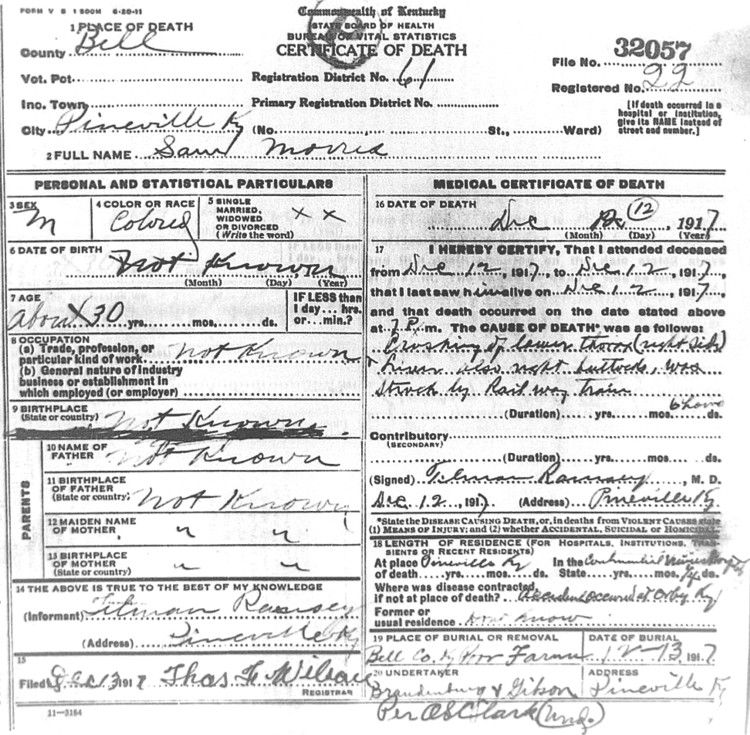 FORM V S 1 500M 6-20-11
Commonwealth of Kentucky
STATE BOARD OF HEALTH
BUREAU OF VITAL STATISTICS
CERTIFICATE OF DEATH
1 PLACE OF DEATH
County Bell
Vot. Pct.
Registration District No. 61
File No. 32057
Registered No. 22
Inc. Town
Primary Registration District No.
City Pineville Ky (No. , St., Ward)
[If death occurred in a hospital or institution, give its NAME instead of street and number.]
2 FULL NAME Sam
PERSONAL AND STATISTICAL PARTICULARS
3 SEX
M
4 COLOR OR RACE
Colored
5 SINGLE MARRIED, WIDOWED OR DIVORCED (Write the word)
x x
6 DATE OF BIRTH
Not Known
(Month) (Day) (Year)
7 AGE
About 30 yrs. mos. ds.
IF LESS than 1 day... hrs. or... min.?
8 OCCUPATION
(a) Trade, profession, or particular kind of work Not Known
(b) General nature of industry business or establishment in which employed (or employer)
9 BIRTHPLACE (State or country) Not Known
PARENTS
10 NAME OF FATHER Not Known
11 BIRTHPLACE OF FATHER (State or country) Not Known
12 MAIDEN NAME OF MOTHER " "
13 BIRTHPLACE OF MOTHER " "
14 THE ABOVE IS TRUE TO THE BEST OF MY KNOWLEDGE
(Informant) Tilman Ramsey
(Address) Pineville Ky
15
Filed Dec 13 1917 Thos
REGISTRAR
11-3184
MEDICAL CERTIFICATE OF DEATH
16 DATE OF DEATH
Dec 12, 1917
(Month) (Day) (Year)
17 I HEREBY CERTIFY, That I attended deceased
from Dec 12, 1917, to Dec 12, 1917,
that I last saw him alive on Dec 12, 1917,
and that death occurred on the date stated above
at 7 P. m. The CAUSE OF DEATH* was as follows:
Crushing of lower thorax (right side)
also right buttocks, was
struck by Railway train
(Duration) yrs. mos. ds.
6 hours
Contributory
(SECONDARY)
(Duration) yrs. mos. ds.
(Signed) Tilman Ramsey, M. D.
Dec 12, 1917 (Address) Pineville Ky
*State the DISEASE CAUSING DEATH, or, in deaths from VIOLENT CAUSES state (1) MEANS OF INJURY; and (2) whether ACCIDENTAL, SUICIDAL or HOMICIDAL.
18 LENGTH OF RESIDENCE (FOR HOSPITALS, INSTITUTIONS, TRANSIENTS OR RECENT RESIDENTS)
At place Pineville Ky In the Continental
of death yrs. mos. ds. State yrs. mos. ds.
Where was disease contracted,
if not at place of death? Accident occurred at Ky
Former or
usual residence Dont know
19 PLACE OF BURIAL OR REMOVAL
Bell Co. Ky Poor Farm
DATE OF BURIAL
12-13 1917
20 UNDERTAKER
Brandenburg & Gibson
ADDRESS
Pineville Ky
Per A S Clark (Und.)